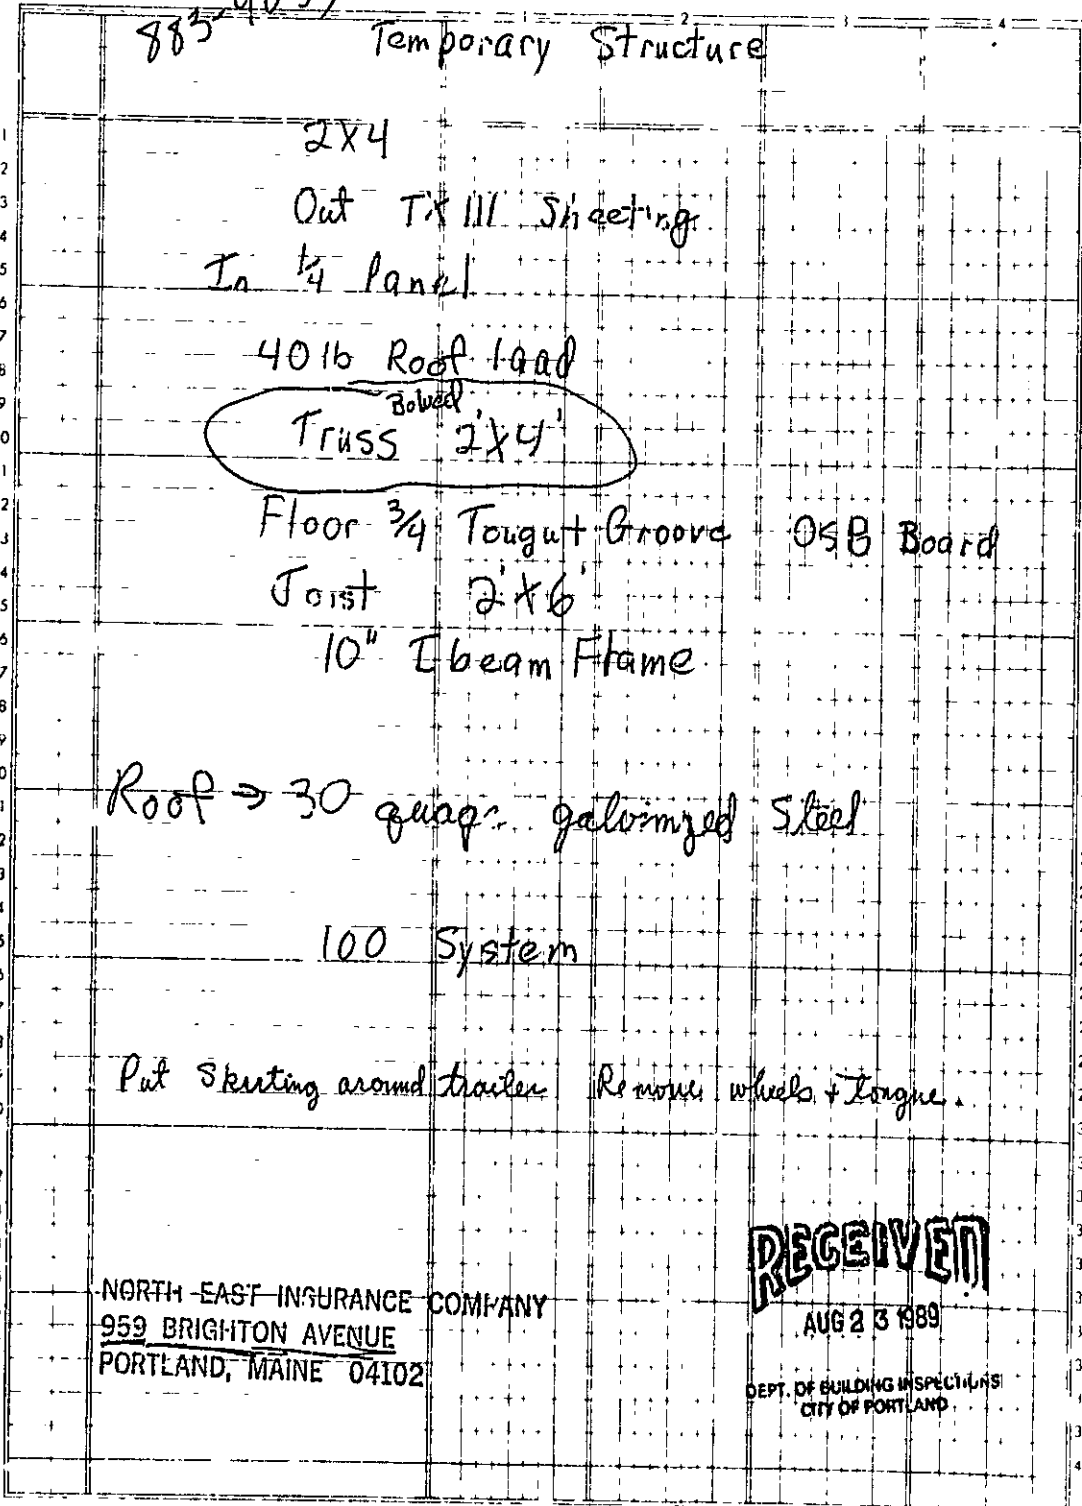 883-
Temporary Structure
2X4
Out TX 111 Sheeting
In 1/4 Panel
40 lb Roof load
Truss 2'X4'
Floor 3/4 Tougut Groove OSB Board
Joist 2'X6'
10" I beam Frame
Roof → 30 guage galvinized Steel
100 System
Put Skirting around trailer Remove wheels + tongue.
NORTH EAST INSURANCE COMPANY
959 BRIGHTON AVENUE
PORTLAND, MAINE 04102
RECEIVED
AUG 23 1989
DEPT. OF BUILDING INSPECTIONS
CITY OF PORTLAND